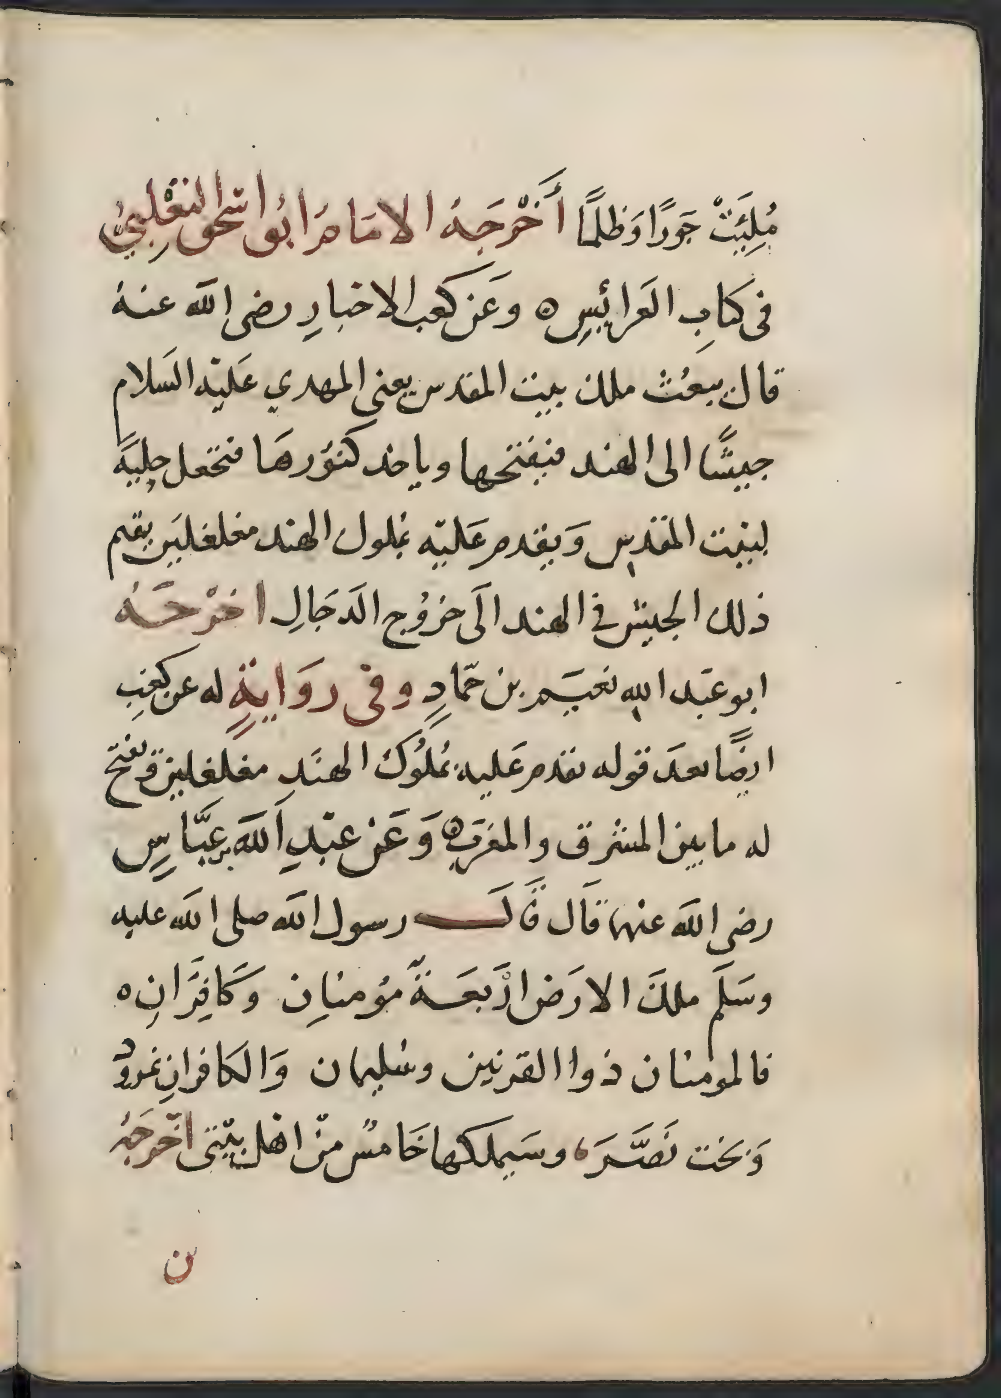 مُلِئَتْ جَورًا وَظلمًا أَخْرَجَهُ الامَامرَ ابُو اسْحق الثعْلِبيُّ
فى كتابِ العَرائسِ ه وعَن كَعبِ الاخبارِ رضى الله عنهُ
قال يبعَثُ ملك بيت المقدس يعنى المهدي عَليْه السَلام
جيشًا الى الهند فيفتحها وياخذ كنوُرهَا فتجعل حِليَةً
لبيت المقدسِ وَيقدم عَليْه بمُلوك الهند مغلغلين يقيم
ذلك الجيش في الهند الَى خرُوج الدَجَالِ اخرْجَهُ
ابو عَبد الله نعَيمر بن حمّادٍ وفى روَايةٍ له عن كَعْبٍ
ايضًا بعدَ قوله يقدم عَليه بمُلوُك الهنَد مغلغلين وَيفتح
له ما بين المشرق والمغربَ ه وَعَنْ عبْدِ اللهَ بن عبَّاسٍ
رضى الله عنهما قَال قَالَ رسول الله صلى الله عليه
وسَلَم ملك الارَضَ ارْبَعَةٌ مؤمنانِ وَكَافِرَانِ ه
فالمومنان ذوا القرنين وسُليمان وَالكَافرانِ نمرودُ
وَبخت نَصَّرَ ه وسَيملكها خَامسُ منْ اهْل بيْتى اخْرَجَهُ
بن